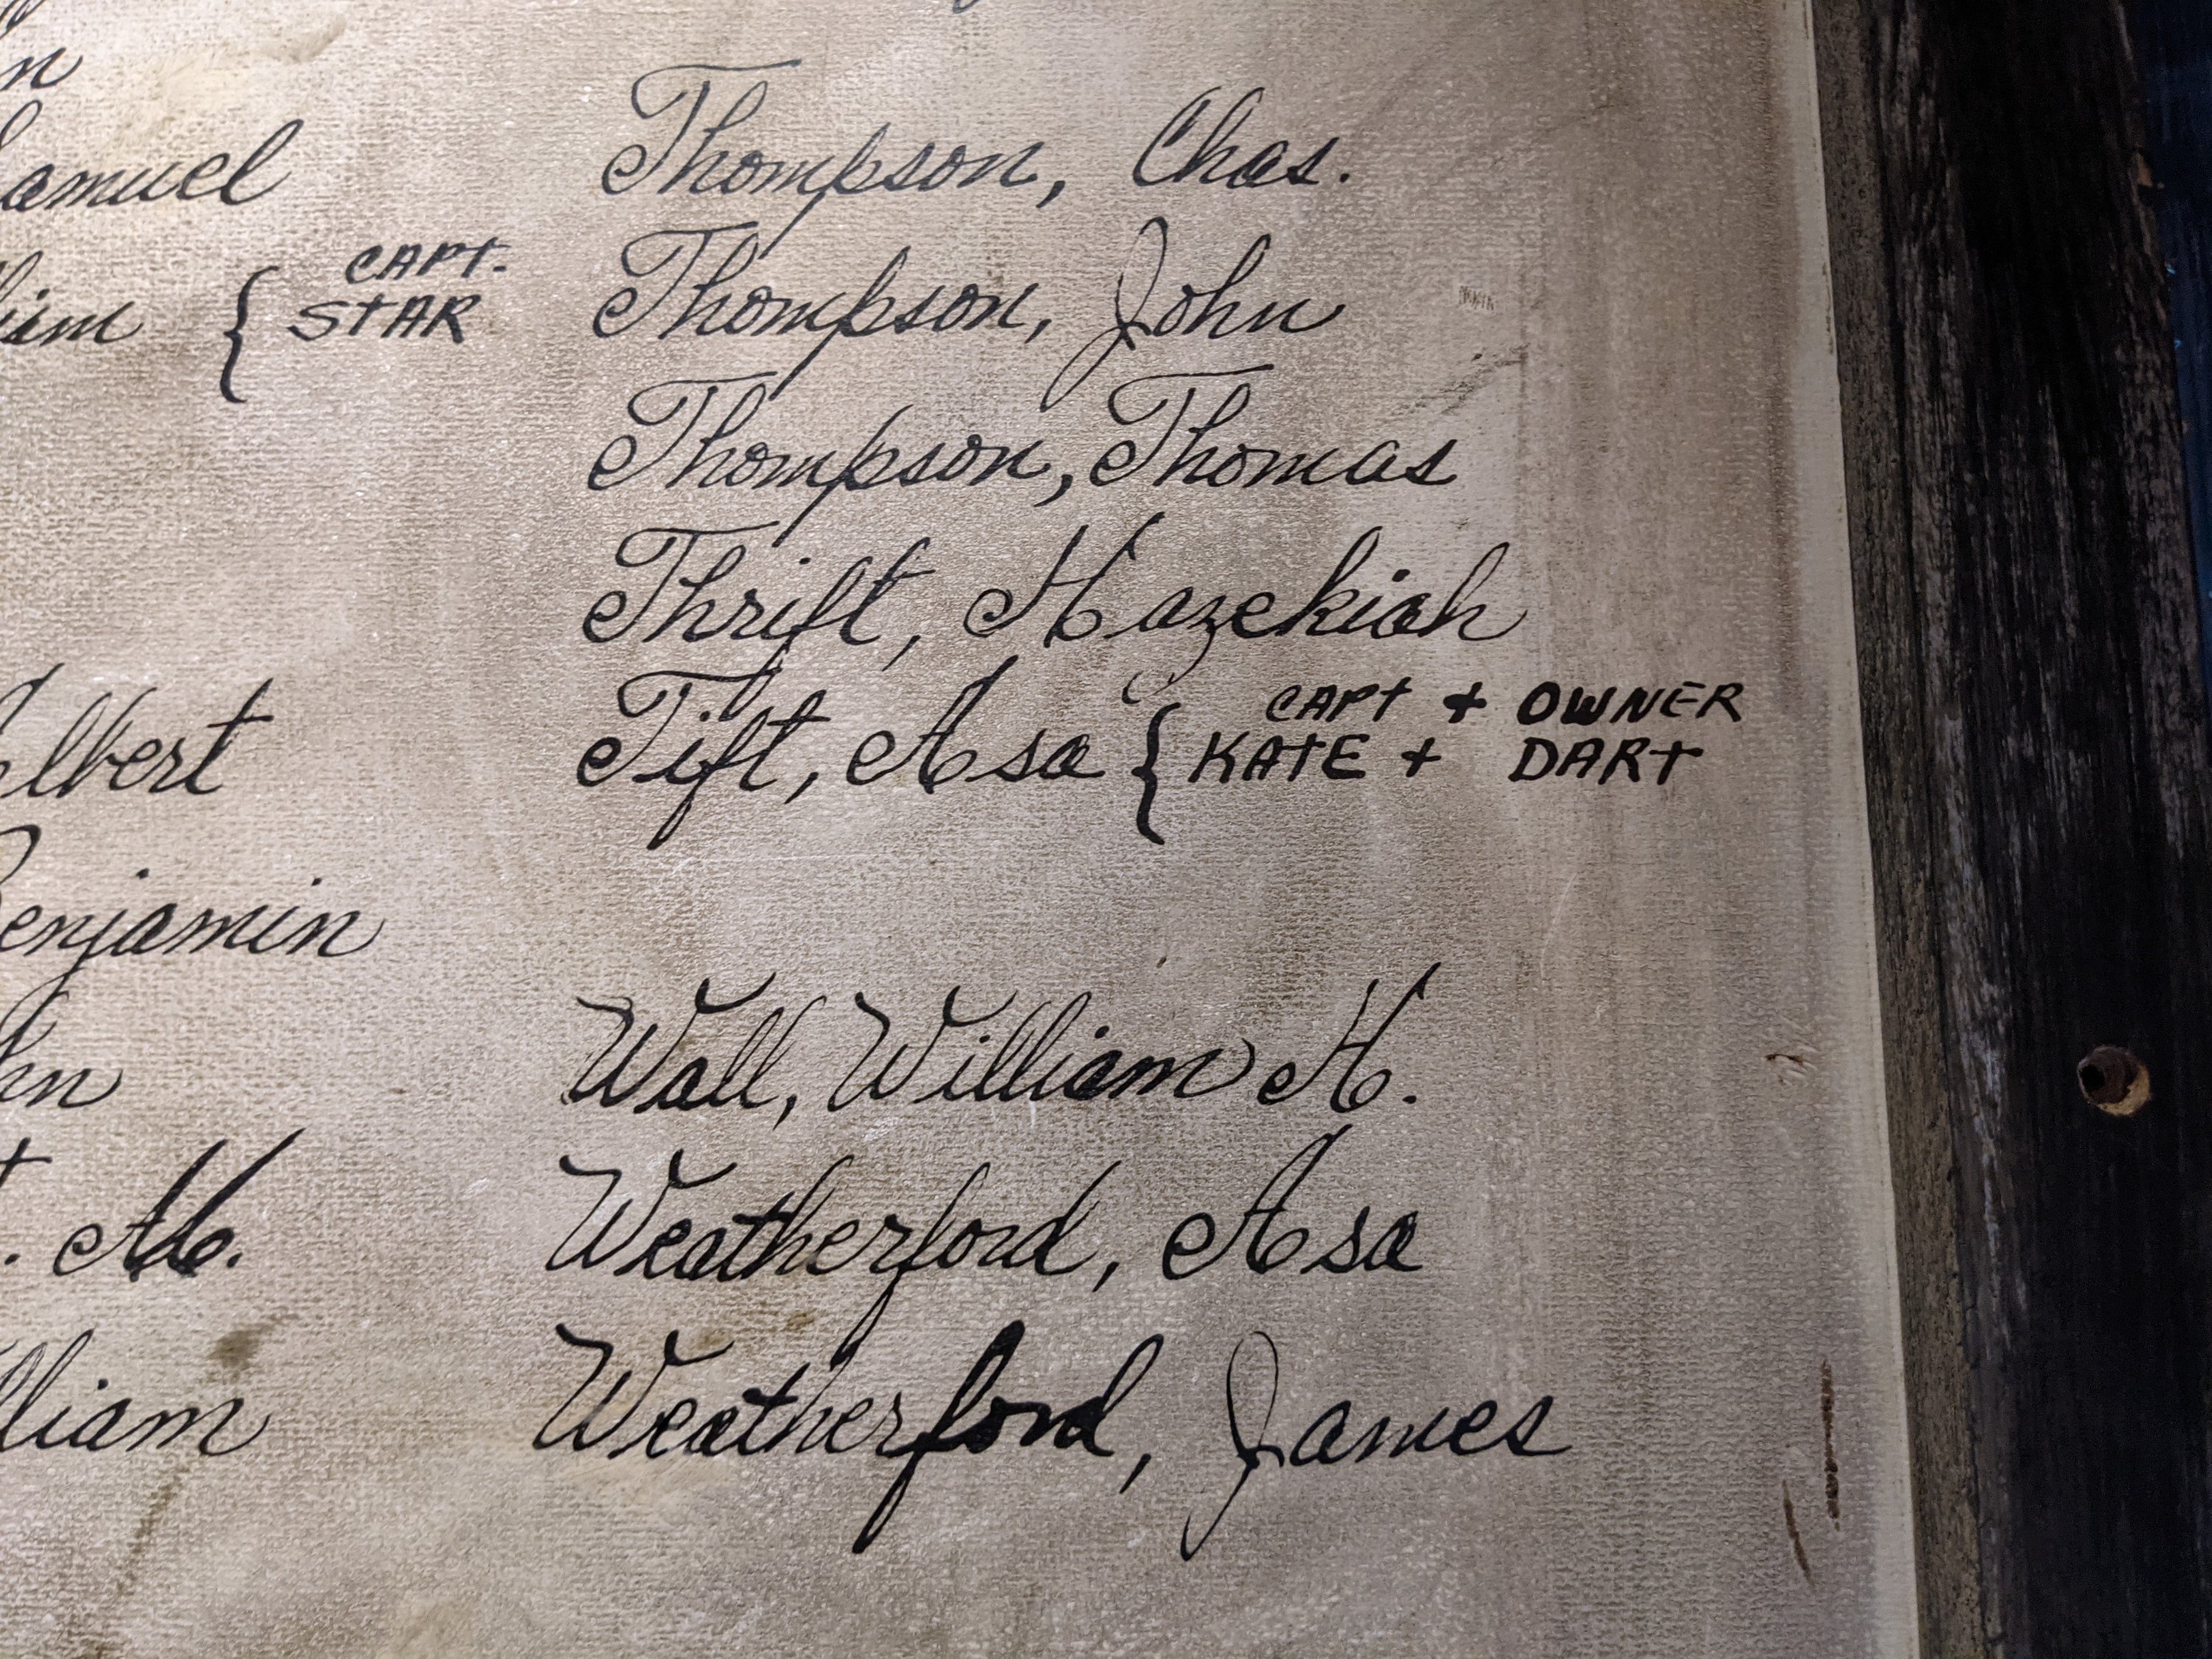 Thompson, Chas.
Thompson, John
Thompson, Thomas
Thrift, Hazekiah
Tift, Asa { CAPT + OWNER
KATE + DART
Wall, William H.
Weatherford, Asa
Weatherford, James
amuel
{ CAPT.
STAR
lbert
enjamin
lliam